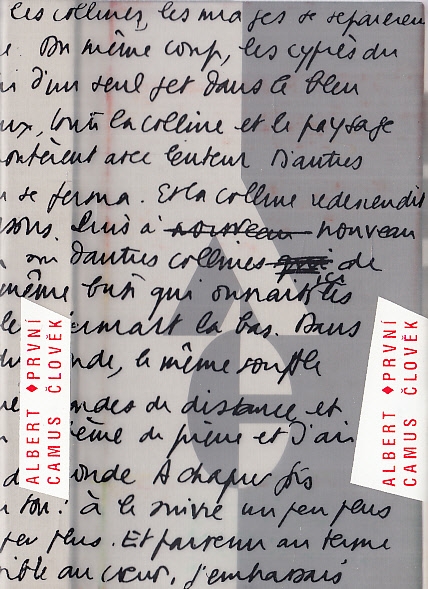 les collines, les nuages se séparèren
Du même coup, les cyprès du
d'un seul jet dans le bleu
ux, toute la colline et le paysage
avec lenteur D'autres
se ferma. Et la colline redescendit
Puis à nouveau nouveau
d'autres collines de
même
la bas. Dans
le même souffle
distance et
de pierre et d'air
onde A chaque fois
à le suivre un peu plus
peu plus. Et parvenu au terme
ible au cœur, j'embrassais
ALBERT ♦ PRVNÍ
CAMUS ČLOVĚK
ALBERT ♦ PRVNÍ
CAMUS ČLOVĚK